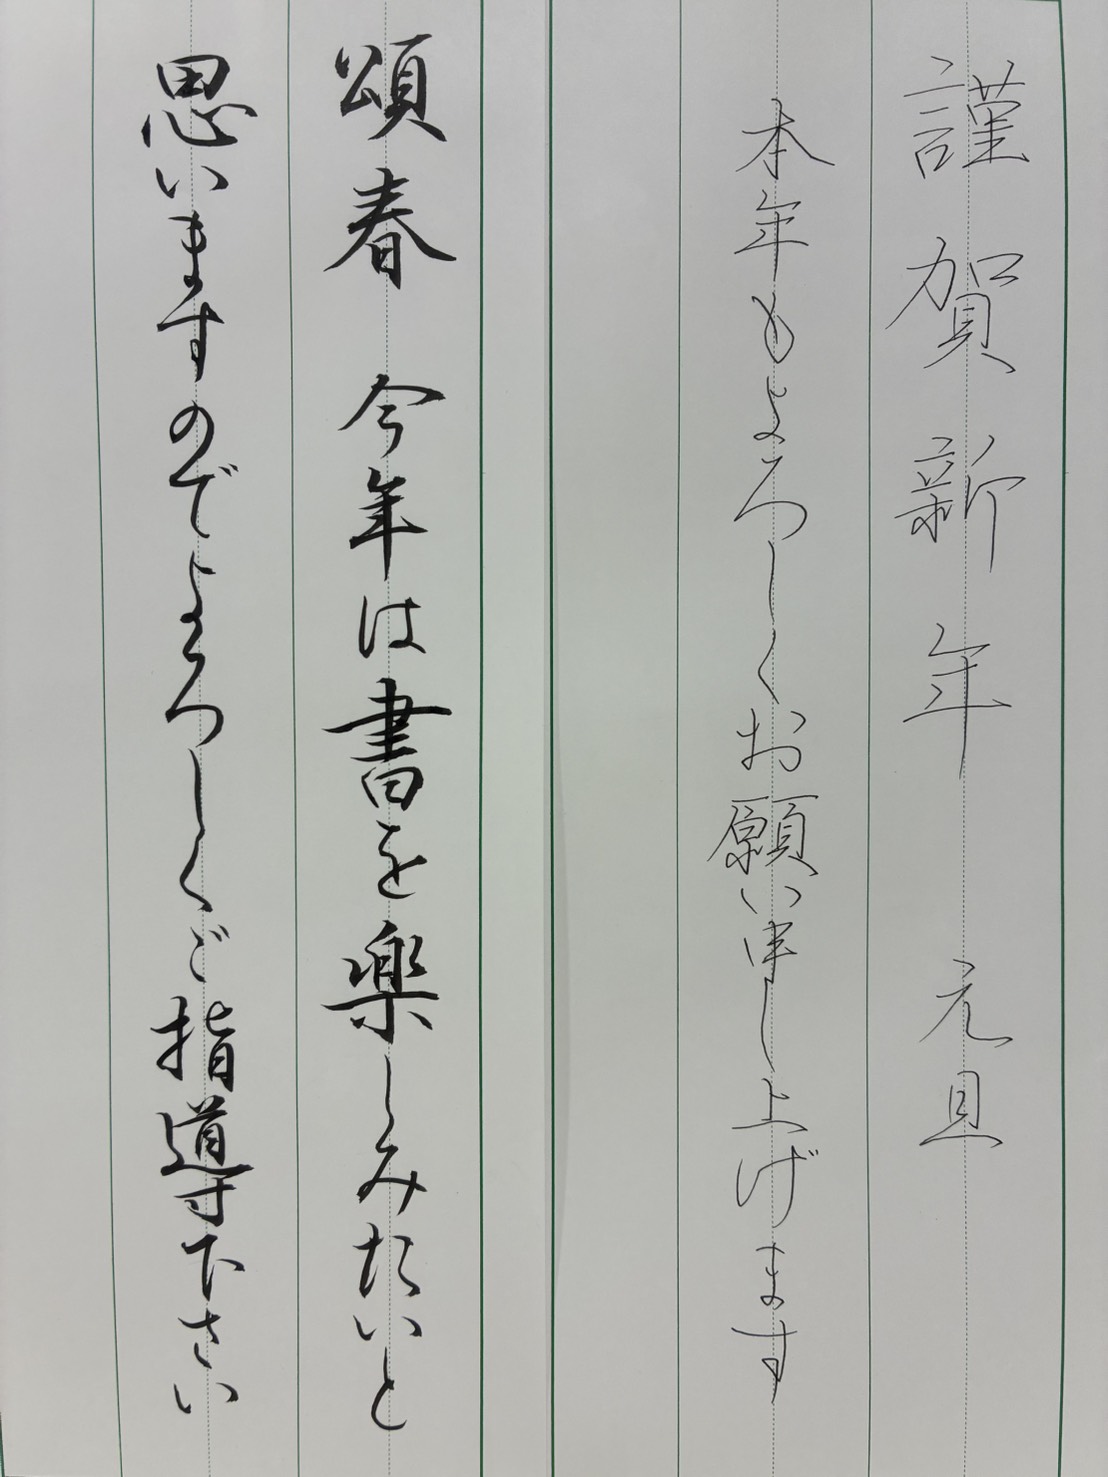 謹賀新年　元旦
本年もよろしくお願い申し上げます
頌春　今年は書を楽しみたいと
思いますのでよろしくご指導下さい